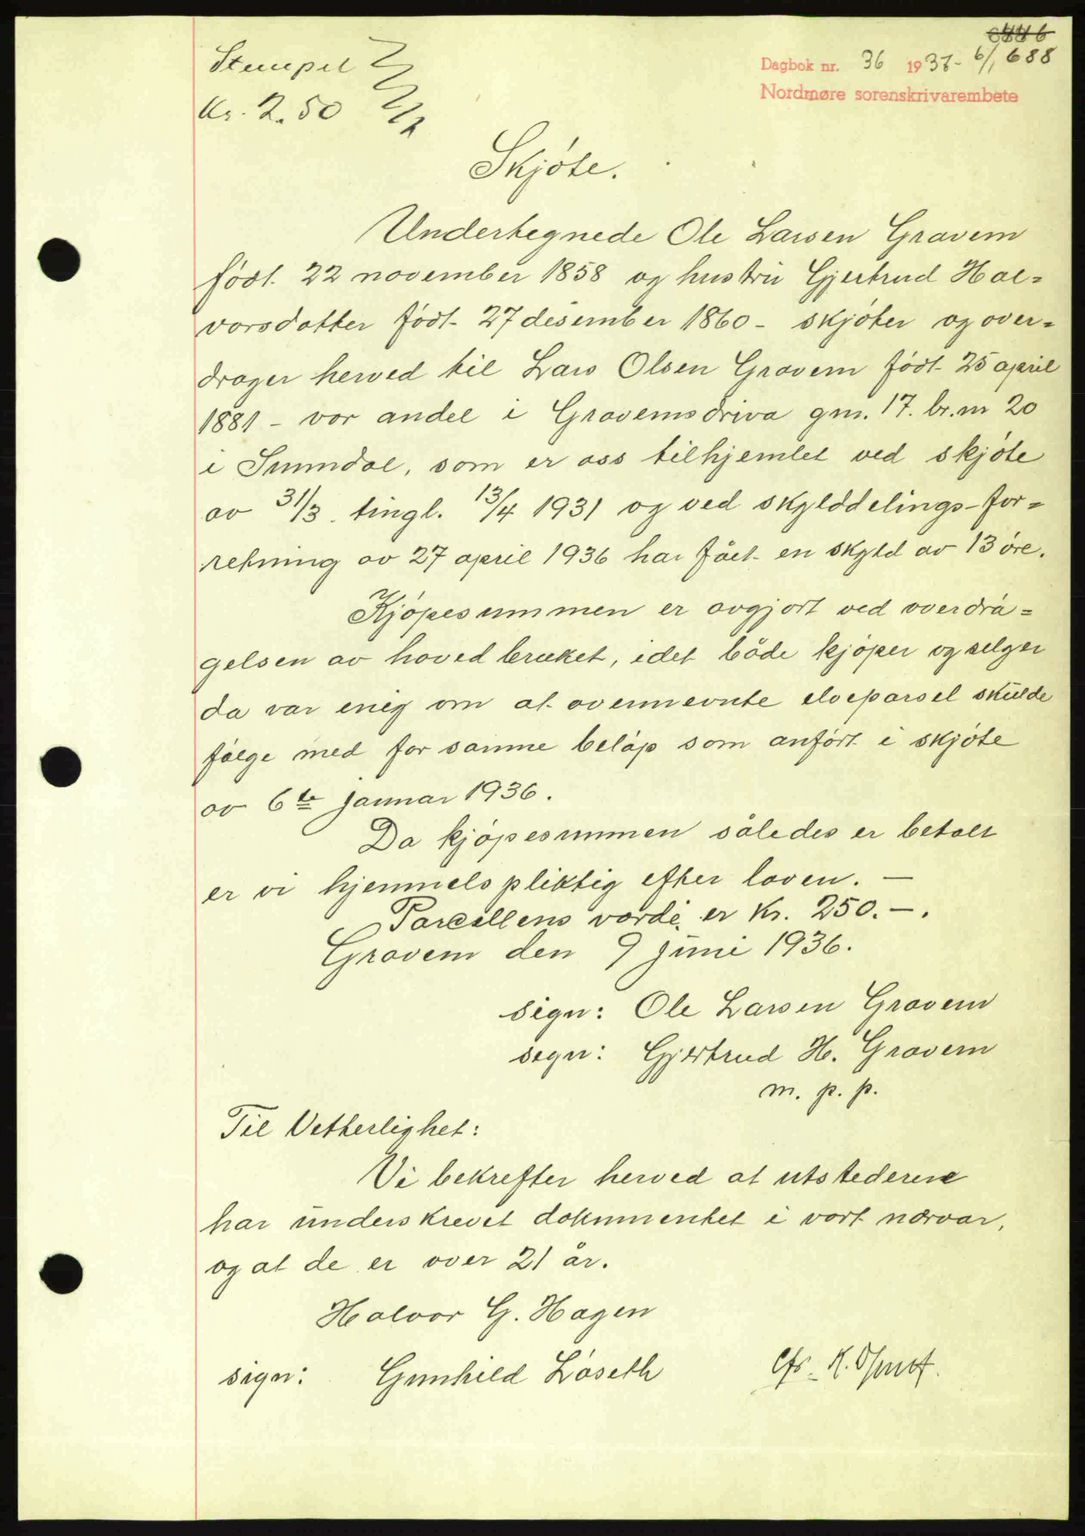 Stempel
Kr. 2.50
Dagbok nr. 36 1937- 6/1 688
Nordmøre sorenskrivarembete
Skjóte.
Undertegnede Ole Larsen Gravem
født 22 november 1858 og hustru Gjertrud Hal=
vorsdatter født 27 desember 1860 - skjóter og over=
drager herved til Lars Olsen Gravem født 25 april
1881 - vor andel i Gravemsdriva gnr. 17. br.nr 20
i Sunndal, som er oss tilhjemlet ved skjóte
av 31/3. tingl. 13/4 1931 og ved skylddelings-for=
retning av 27 april 1936 har fået en skyld av 13 øre.
Kjópesummen er avgjort ved overdra=
gelsen av hovedbruket, idet både kjóper og selger
da var enig om at ovennevnte elveparsel skulde
fólge med for samme beløp som anført i skjóte
av 6te januar 1936.
Da kjópesummen således er betalt
er vi hjemmelspliktig efter loven. —
Parcellens verdi er Kr. 250.-.
Gravem den 9 juni 1936.
sign: Ole Larsen Gravem
sign: Gjertrud H. Gravem
m. p. p.
Til Vetterlighet:
Vi bekrefter herved at utstederene
har underskrevet dokumentet i vort nærvær,
og at de er over 21 år.
Halvor G. Hagen
sign: Gunhild Lóseth